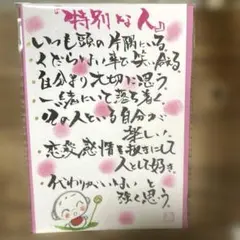 『特別な人』
・いつも頭の片隅にいる
・くだらない事で笑い合える
・自分より大切に思う。
・一緒にいて落ち着く
・その人といる自分が
楽しい
・恋愛感情を抜きにして
人として好き。
・代わりがいないと
強く思う。